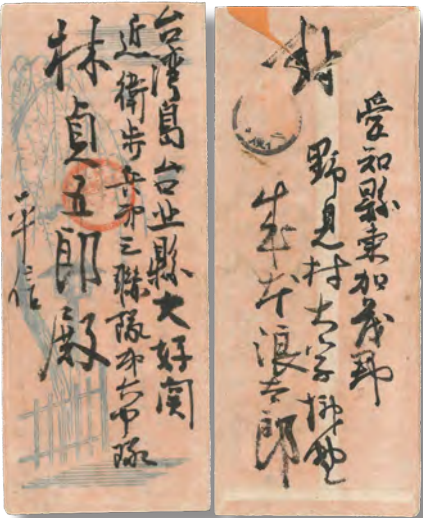 台湾島台北縣大好関
近衛歩兵第三聯隊第六中隊
林貞五郎殿
平信
封
愛知縣東加茂郡
野見村大字
浪太郎